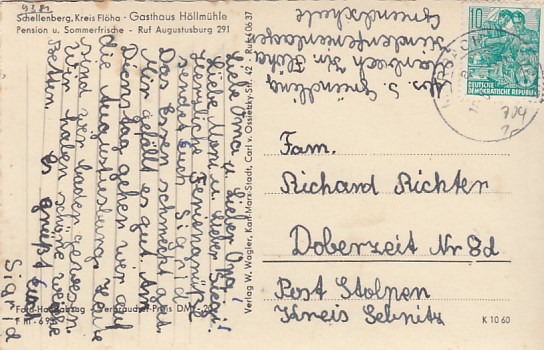 Schellenberg, Kreis Flöha · Gasthaus Höllmühle
Pension u. Sommerfrische - Ruf Augustusburg 291
Liebe Oma u. lieber Opa!
Liebe Moni u. lieber
Herzliche Feriengrüße
sendet Euch Sigrid
Das Essen schmeckt gut.
Mir gefällt es gut. Am
Dienstag gehen wir auf
die Augustusburg. Heute
sind wir baden gewesen.
Wir haben schöne weiche
Betten. Es grüßt Euch
Sigrid
Foto-Handabzug Verbraucher-Preis DM
Verlag W. Wagler, Karl-Marx-Stadt, Carl v. Ossietzky-Str. 42 · Ruf 5 06 37
Abs. S. Gründling
Kr. Flöha
Kinderferienlager
Grundschule
10
DEUTSCHE
DEMOKRATISCHE REPUBLIK
Fam.
Richard Richter
Doberzeit Nr 8d
Post Stolpen
Kreis Sebnitz
K 10 60